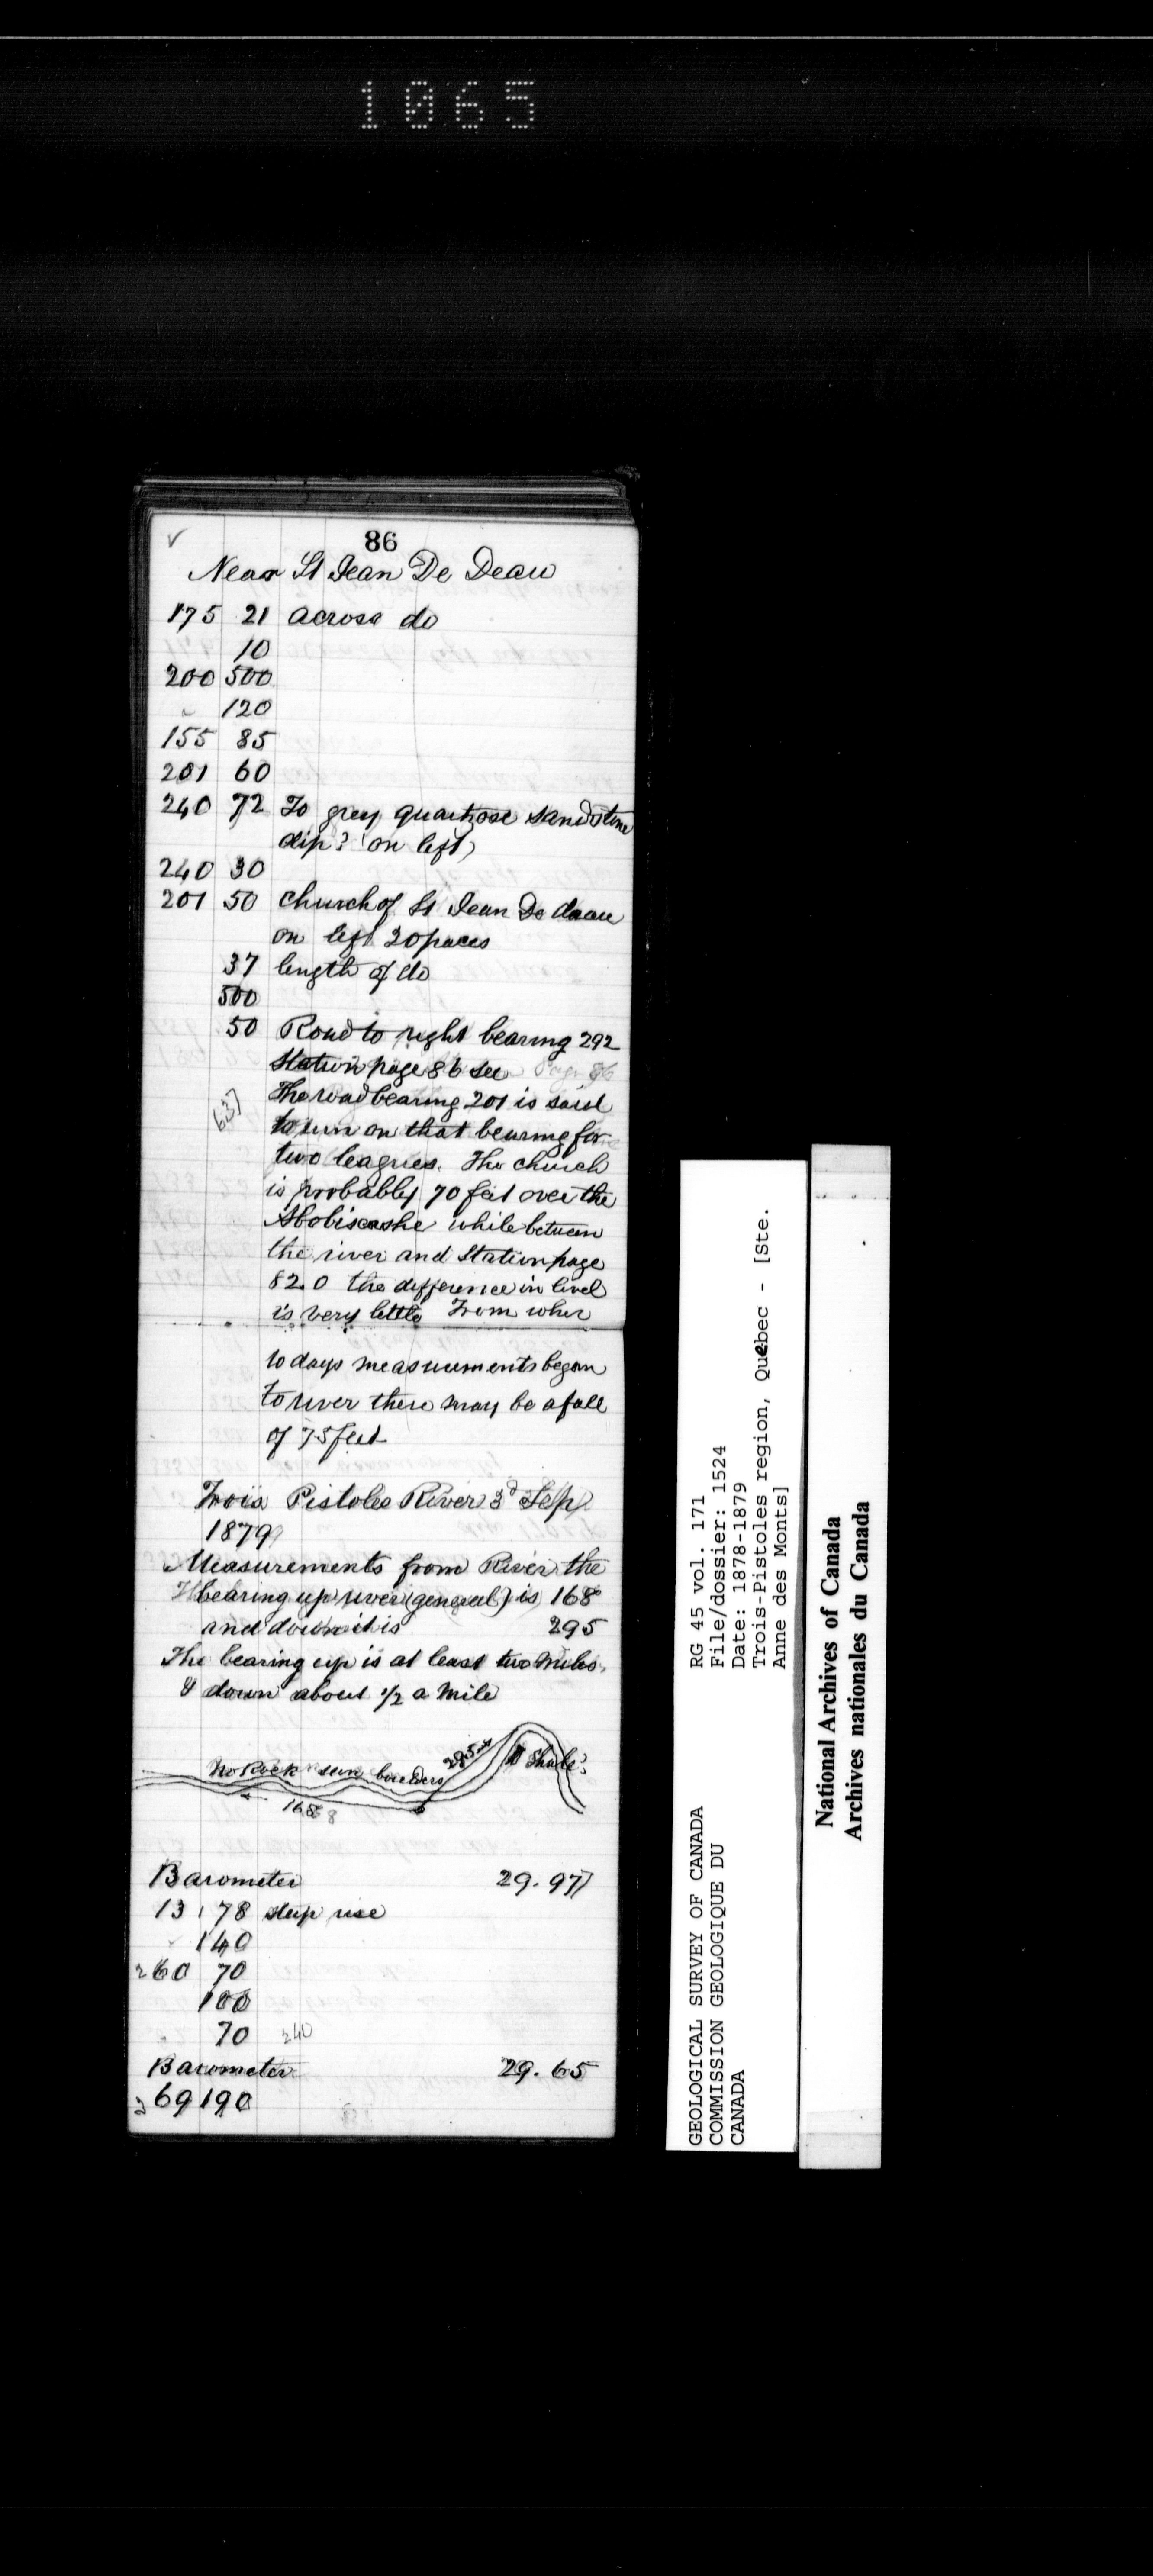 1065
86
Near St Jean De Deau
175 21 across do
10
200 500
" 120
155 85
201 60
240 72 To grey quartzose sandstone
dip? (on left)
240 30
201 50 Church of St Jean De deau
on left 20 paces
37 length of do
500
50 Road to right bearing 292
Station page 86 see Page 86
637
The road bearing 201 is said
to run on that bearing for
two leagues. The church
is probably 70 feet over the
while between
the river and Station page
82.0 the difference in level
is very little From wher
to days measurements began
to river there may be a fall
of 75 feet
Trois Pistoles River 3d Sep
1879
Measurements from River the
bearing up river (general) is 168
and down it is 295
The bearing up is at least two miles
& down about 1/2 a mile
No Rock seen boulders
295
Shale?
168
Barometer 29.97
13 78 steep rise
" 140
260 70
100
70 240
Barometer 29.65
269 190
GEOLOGICAL SURVEY OF CANADA
COMMISSION GEOLOGIQUE DU
CANADA
RG 45 vol. 171
File/dossier: 1524
Date: 1878-1879
Trois-Pistoles region, Quebec - [Ste.
Anne des Monts]
National Archives of Canada
Archives nationales du Canada